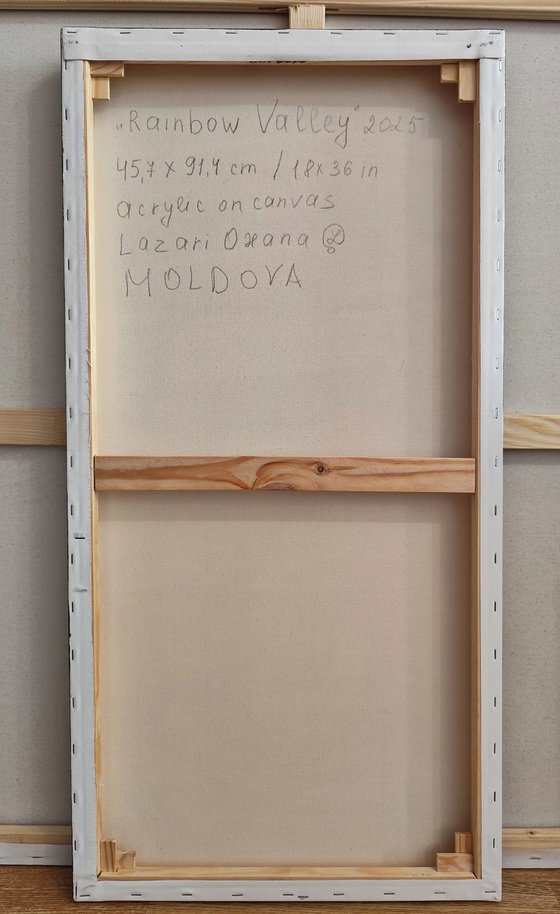 „Rainbow Valley" 2025
45,7 x 91,4 cm / 18x36 in
acrylic on canvas
Lazari Oxana
MOLDOVA